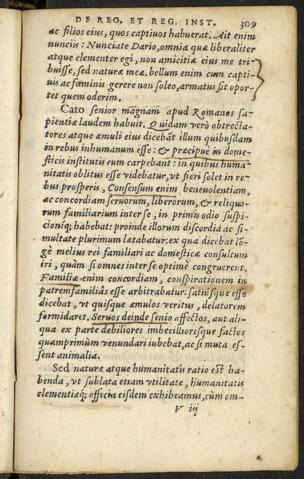 DE REG. ET REG. INST. 309
ac filios eius, quos captiuos habuerat. Ait enim
nuncius: Nunciate Dario, omnia quæ liberaliter
atque clementer egi, non amicitiæ eius me tri
buisse, sed naturæ meæ. bellum enim cum capti-
uis ac fœminis gerere non soleo, armatus sit opor-
tet quem oderim.
Cato senior magnam apud Romanos sa-
pientiæ laudem habuit. Quidam verò obtrecta-
tores atque æmuli eius dicebāt illum quibusdam
in rebus inhumanum esse: & præcipue in dome-
sticis institutis eum carpebant: in quibus huma-
nitatis oblitus esse videbatur, vt fieri solet in re-
bus prosperis, Consensum enim beneuolentiam,
ac concordiam seruorum, liberorum, & reliquo-
rum familiarium inter se, in primis odio suspi-
cioniq; habebat: proinde illorum discordia ac si-
multate plurimum lætabatur: ex qua dicebat lō-
gè melius rei familiari ac domesticæ consultum
iri, quàm si omnes inter se optimè congruerent.
Familiæ enim concordiam, conspirationem in
patremfamiliâs esse arbitrabatur: satisque esse
dicebat, vt quisque æmulos veritus, delatorem
formidaret. Seruos deinde senio affectos, aut ali-
qua ex parte debiliores imbecilliorésque factos
quamprimùm venundari iubebat, ac si muta es-
sent animalia.
Sed naturæ atque humanitatis ratio est ha-
benda, vt sublata etiam vtilitate, humanitatis
clementiæq; officia eisdem exhibeamus, cùm om-
V iij